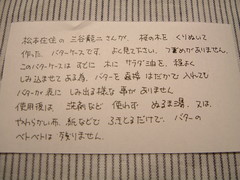 松本在住の 三谷龍二さんが、桜の木を くりぬいて
作った バターケースです。よく見て下さい。つぎめがありません。
このバターケースは すでに 木に サラダ油を、程よく
しみ込ませてある為、バターを 直接 はだかで 入れても
バターが 表に しみ出る様な 事が ありません
使用後は、洗剤など 使わず ぬるま湯、又は、
やわらかい布、紙などで ふきとるだけで、バターの
ベトベトは 残りません。